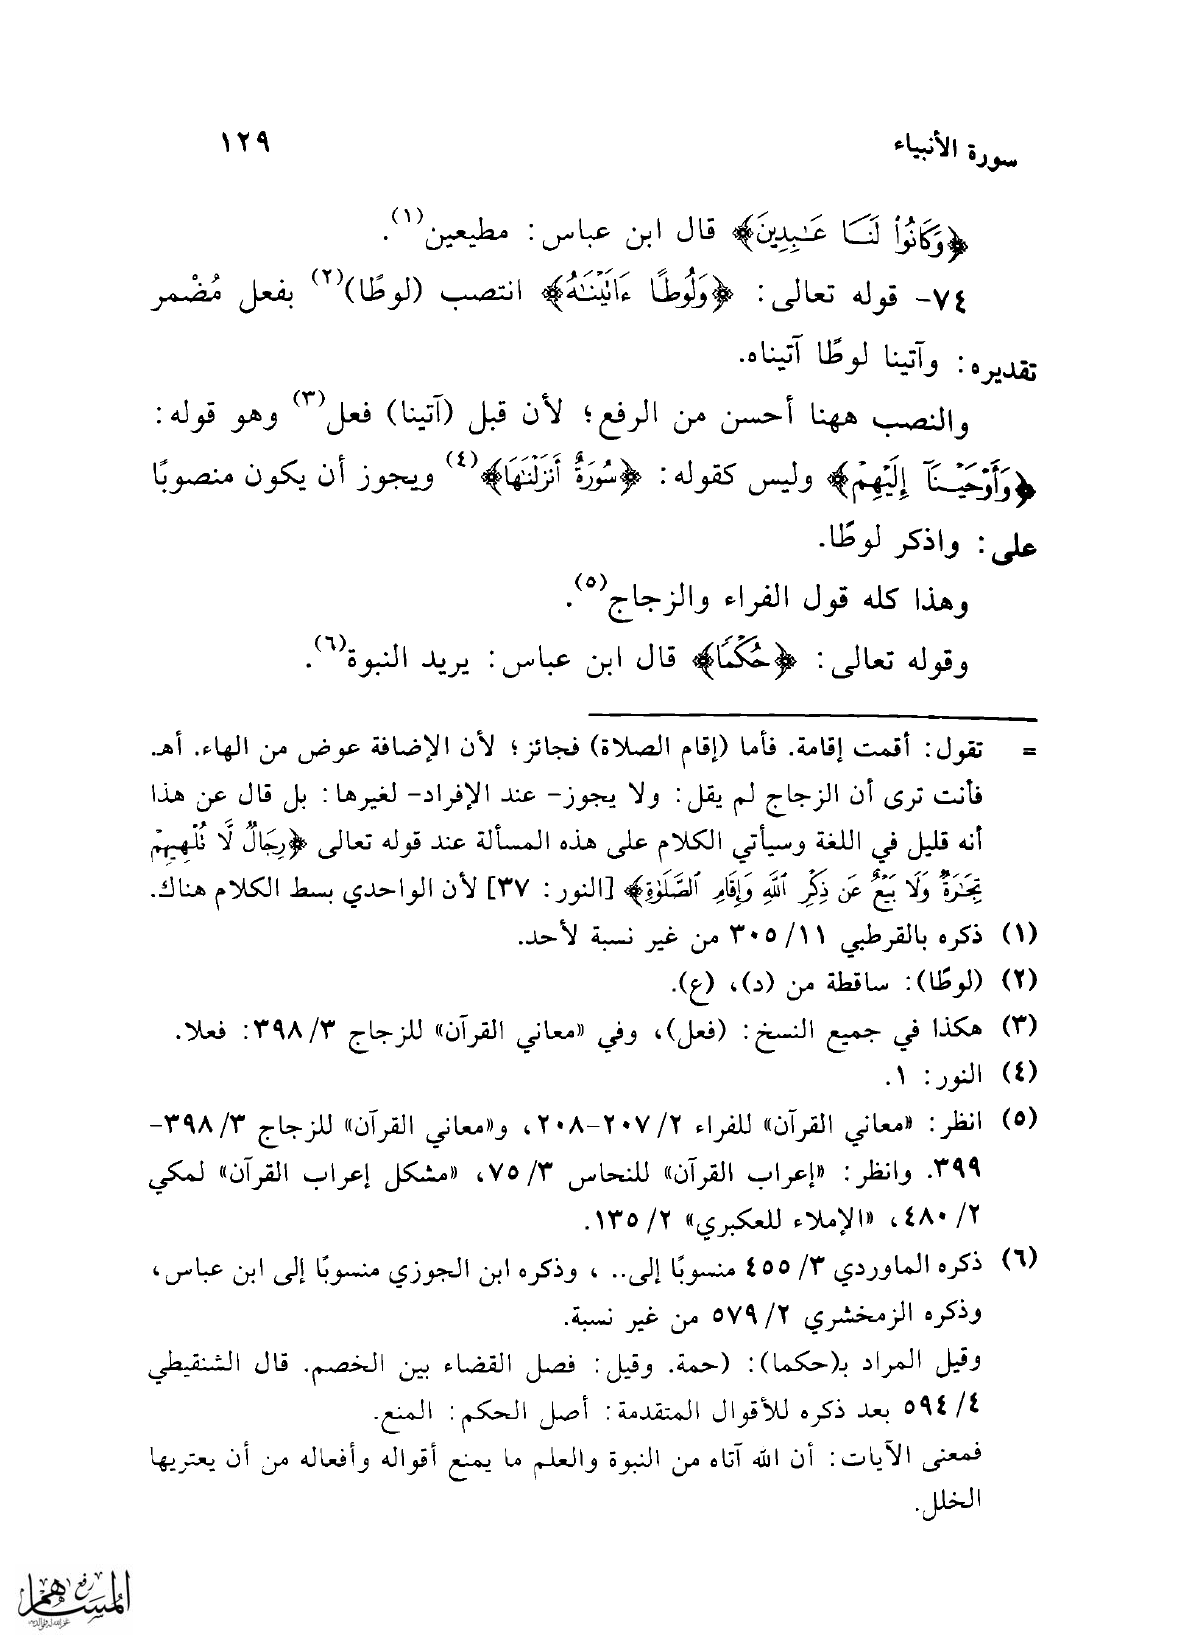 سورة الأنبياء ١٢٩
﴿وَكَانُوا۟ لَنَا عَـٰبِدِينَ﴾ قال ابن عباس: مطيعين(١).
٧٤- قوله تعالى: ﴿وَلُوطًا ءَاتَيْنَـٰهُ﴾ انتصب (لوطًا)(٢) بفعل مُضْمر
تقديره: وآتينا لوطًا آتيناه.
والنصب ههنا أحسن من الرفع؛ لأن قبل (آتينا) فعل(٣) وهو قوله:
﴿وَأَوْحَيْنَآ إِلَيْهِمْ﴾ وليس كقوله: ﴿سُورَةٌ أَنزَلْنَـٰهَا﴾(٤) ويجوز أن يكون منصوبًا
على: واذكر لوطًا.
وهذا كله قول الفراء والزجاج(٥).
وقوله تعالى: ﴿حُكْمًا﴾ قال ابن عباس: يريد النبوة(٦).
= تقول: أقمت إقامة. فأما (إقام الصلاة) فجائز؛ لأن الإضافة عوض من الهاء. أهـ.
فأنت ترى أن الزجاج لم يقل: ولا يجوز- عند الإفراد- لغيرها: بل قال عن هذا
أنه قليل في اللغة وسيأتي الكلام على هذه المسألة عند قوله تعالى ﴿رِجَالٌ لَّا تُلْهِيهِمْ
تِجَـٰرَةٌ وَلَا بَيْعٌ عَن ذِكْرِ ٱللَّهِ وَإِقَامِ ٱلصَّلَوٰةِ﴾ [النور: ٣٧] لأن الواحدي بسط الكلام هناك.
(١) ذكره بالقرطبي ١١/ ٣٠٥ من غير نسبة لأحد.
(٢) (لوطًا): ساقطة من (د)، (ع).
(٣) هكذا في جميع النسخ: (فعل)، وفي «معاني القرآن» للزجاج ٣/ ٣٩٨: فعلا.
(٤) النور: ١.
(٥) انظر: «معاني القرآن» للفراء ٢/ ٢٠٧-٢٠٨، و«معاني القرآن» للزجاج ٣/ ٣٩٨-
٣٩٩. وانظر: «إعراب القرآن» للنحاس ٣/ ٧٥، «مشكل إعراب القرآن» لمكي
٢/ ٤٨٠، «الإملاء للعكبري» ٢/ ١٣٥.
(٦) ذكره الماوردي ٣/ ٤٥٥ منسوبًا إلى.. ، وذكره ابن الجوزي منسوبًا إلى ابن عباس،
وذكره الزمخشري ٢/ ٥٧٩ من غير نسبة.
وقيل المراد بـ(حكما): (حمة. وقيل: فصل القضاء بين الخصم. قال الشنقيطي
٤/ ٥٩٤ بعد ذكره للأقوال المتقدمة: أصل الحكم: المنع.
فمعنى الآيات: أن الله آتاه من النبوة والعلم ما يمنع أقواله وأفعاله من أن يعتريها
الخلل.
رفع
المساهم